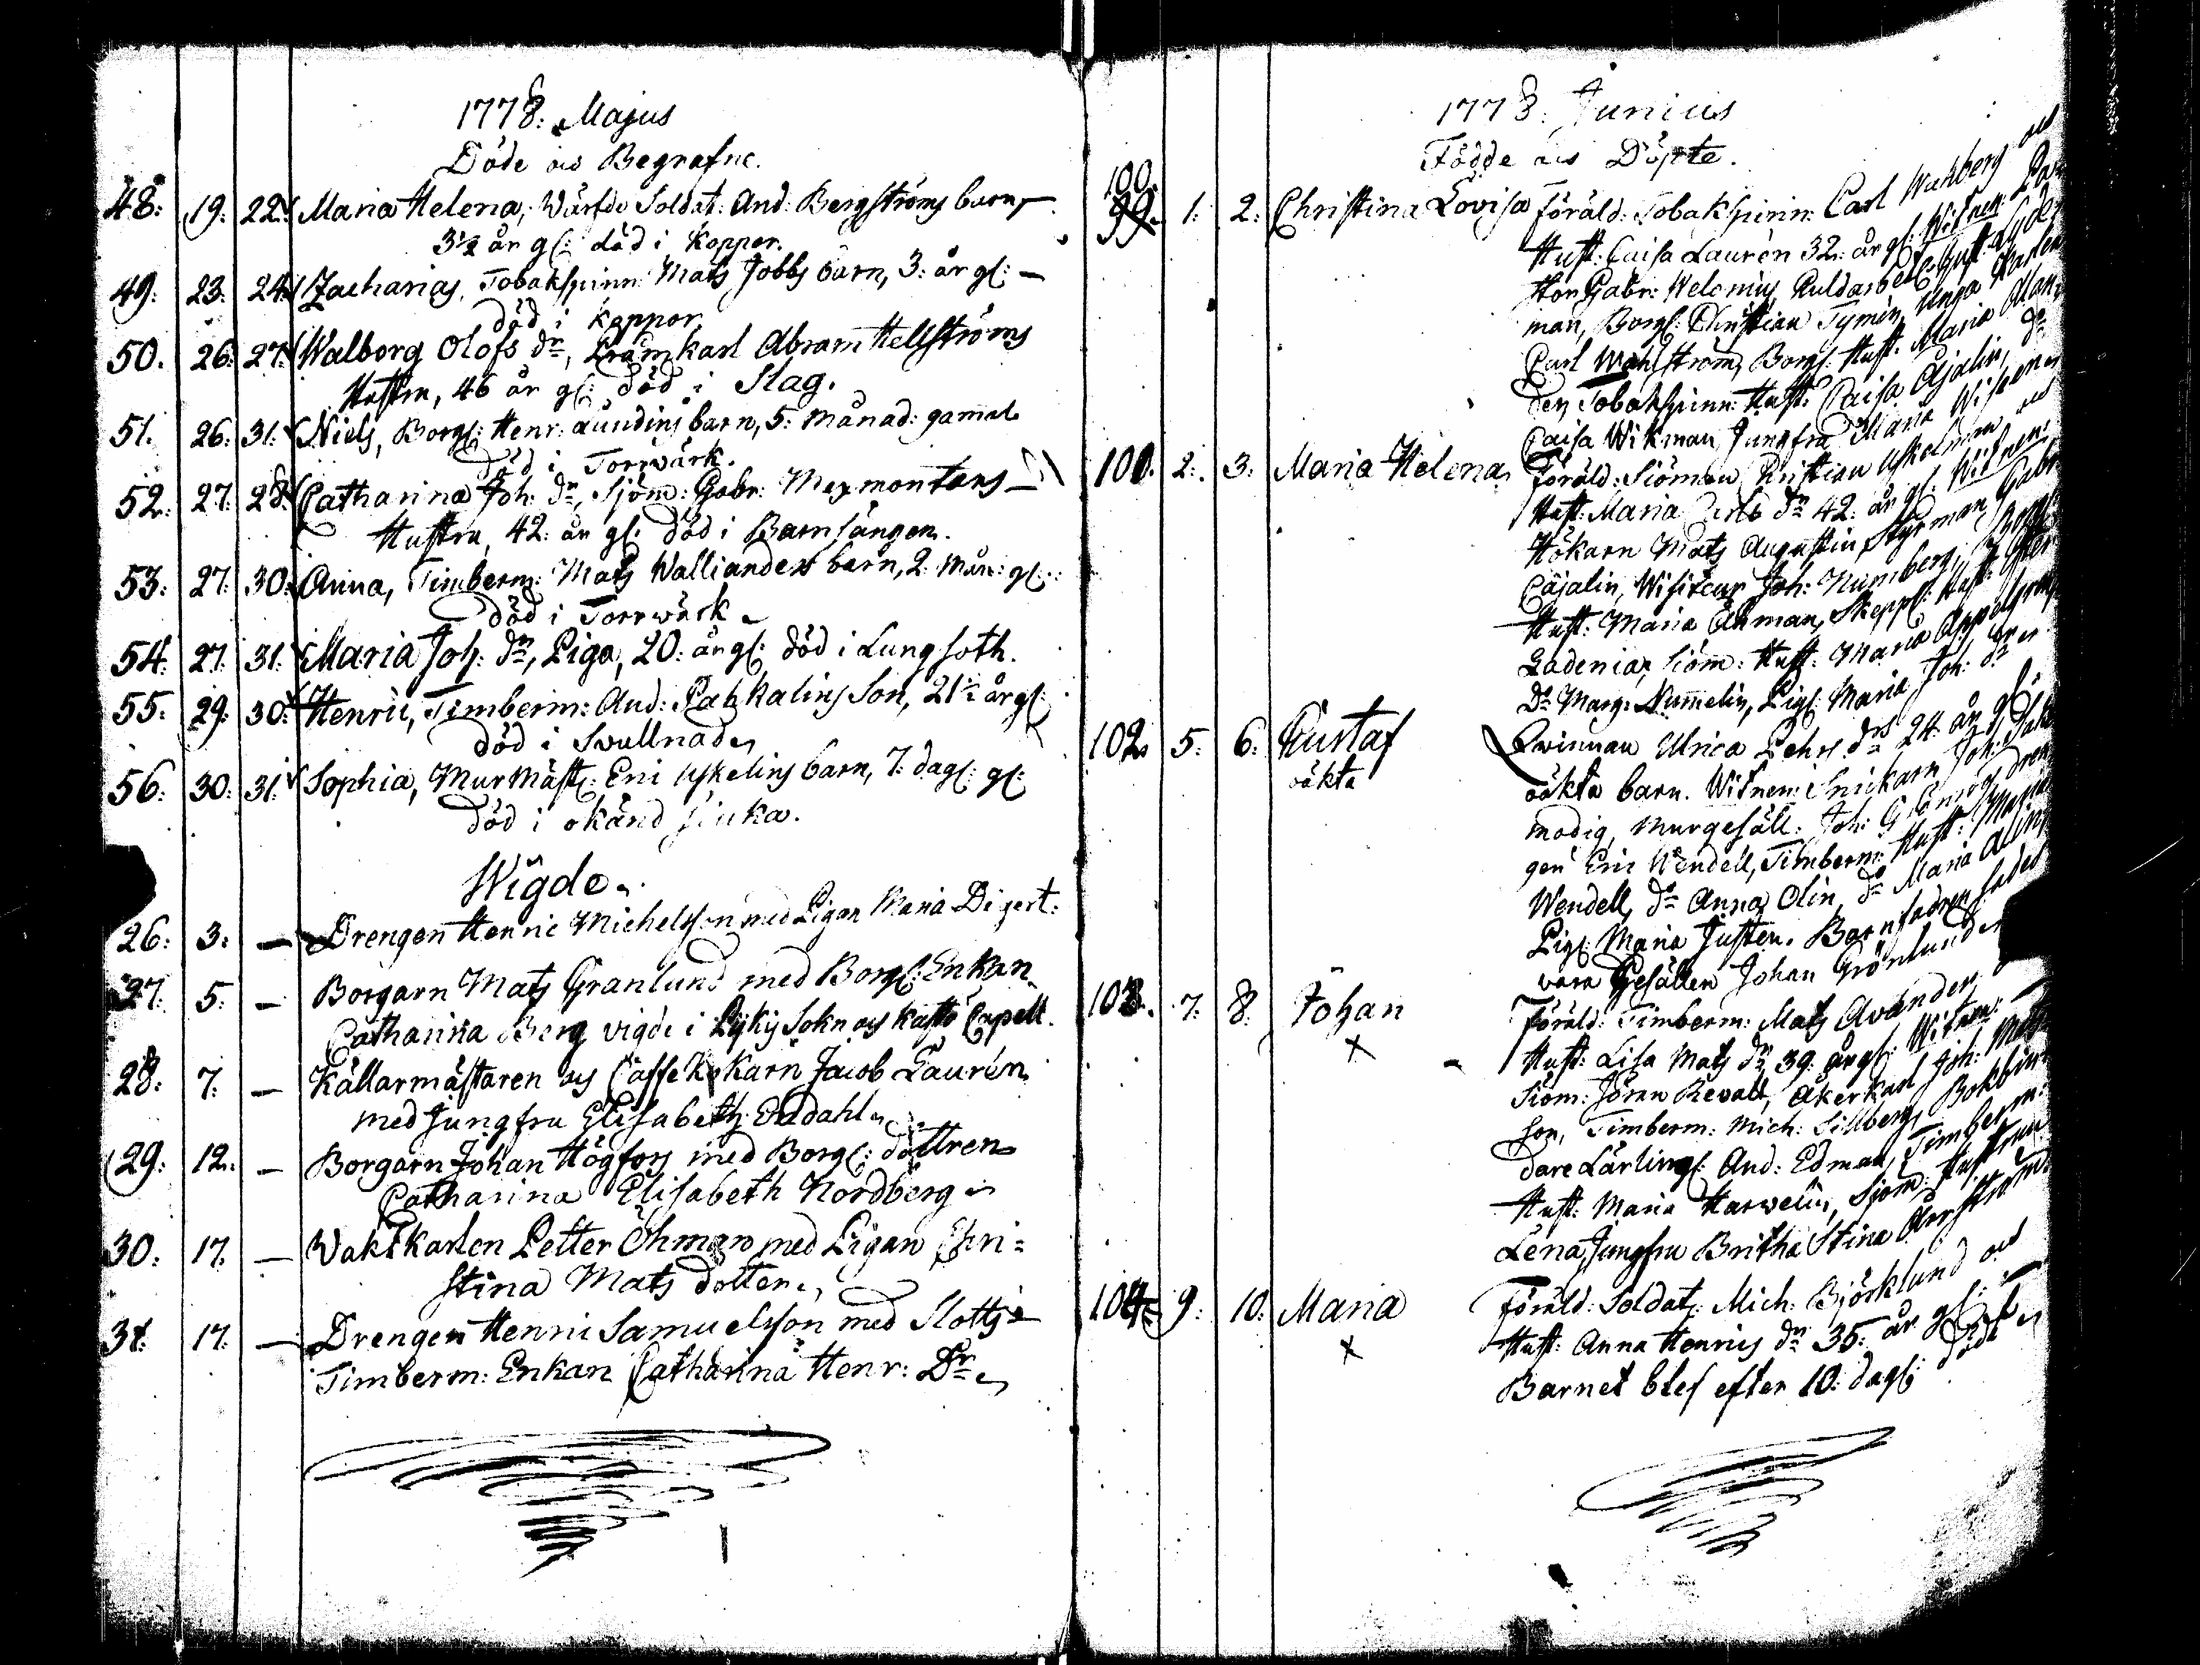 1778: Majus
Döde och Begrafne.
48: 19: 22: Maria Helena, Wärfde Soldat: And: Bergströms barn,
3½ år gl: död i Koppor.
49: 23: 24: Zacharias, Tobakspinn: Mats Jobbs barn, 3: år gl:
död i Koppor
50. 26: 27: Walborg Olofs dr, Abram Hellströms
Hustru, 46 år gl: död i Slag.
51. 26: 31: Niels, Borg: Henr: Lundins barn, 5: Månad: gamal
död i Torrwärk.
52: 27: 28: Catharina Joh: dr, Sjöm: Gabr: Mexmontans
Hustru, 42: år gl: död i Barnsängen.
53: 27: 30: Anna, Timberm: Mats Wallianders barn, 2: Mån: gl:
död i Torrwärk
54: 27: 31: Maria Joh: dr, Piga, 20: år gl: död i Lungsoth.
55: 29: 30: Henric, Timberm: And: Son, 21½ år gl:
död i Svullnad
56: 30: 31: Sophia, MurMäst: Eric Uskelins barn, 7: dag: gl:
död i okänd siuka.
Wigde
26: 3: — Drengen Henric Michelsson med Pigan Maria Digert:
27: 5: — Borgarn Mats Granlund med Borg: Enkan
Catharina Berg vigde i Pykis Sokn och Kustö Capell.
28: 7: — Källarmästaren och Caffekokarn Jacob Laurén
med Jungfru Elisabeth
29: 12: — Borgarn Johan Högfors med Borg: dottren
Catharina Elisabeth Nordberg
30: 17: — Waktkarlen Petter Öhman med Pigan Chri=
stina Mats dotter
31: 17: — Drengen Henric Samuelsson med Slotts=
Timberm: Enkan Catharina Henr: Dr
1778: Junius
Födde och Döpte.
100.
99. 1: 2: Christina Lovisa Föräld: Tobakspinn: Carl Wahberg och
Hust: Caisa Laurén 32: år gl: Witnen:
Gabr: Welonius, Guldarbet: Gust:
man, Borg: Christian Tymén, Unga Karlen
Carl Wahlström, Borg: Hust: Maria
den Tobakspinn: Hust: Caisa Cajalin, do
Caisa Wikman, Jungfru Maria
100. 2: 3: Maria Helena Föräld: Siöman Christian Uskelman och
Hust: Maria dr 42: år gl: Witnen:
Hökarn Mats Augustin, Styrman Gabr:
Cajalin, Visiteur Joh: Numberg, Borg:
Hust: Maria Åhman, Skepp: Hust:
Gadenia, Siöm: Hust: Maria
do Marg: Nummelin, Pig: Maria Joh: dr
102. 5: 6: Gustaf Qvinnan Ulrica Pehrs drs 24: år gl:
oäkta oäkta barn. Witnen: Snickarn Joh:
modig, Murgesäll: Joh: dren
gen Eric Wendell, Timberm: Hust: Maria
Wendell, do Anna Olin, do Maria
Pig: Maria Justen. Barnfadren sades
vara Gesällen Johan Grönlund
103. 7: 8: Johan Föräld: Timberm: Mats Avander
Hust: Lisa Mats dr 39: år gl: Witnen:
Siöm: Jöran Revall, Åkerkarl Joh:
son, Timberm: Mich: Sillberg, Bokbin
dare Lärling: And: Edman, Timberm:
Hust: Maria Harwelin, Sjöm: Hustrun
Lena, Jungfru Britha Stina
104: 9: 10: Maria Föräld: Soldat: Mich: Björklund och
Hust: Anna Henrics dr 35: år gl:
Barnet blef efter 10: dag: dödt